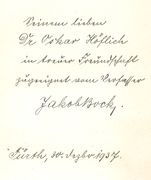 Seinem lieben
Dr Oskar Höflich
in treuer Freundschaft
zugeeignet vom Verfasser
Jakob Bock.
Fürth, 30. Dezbr. 1937.